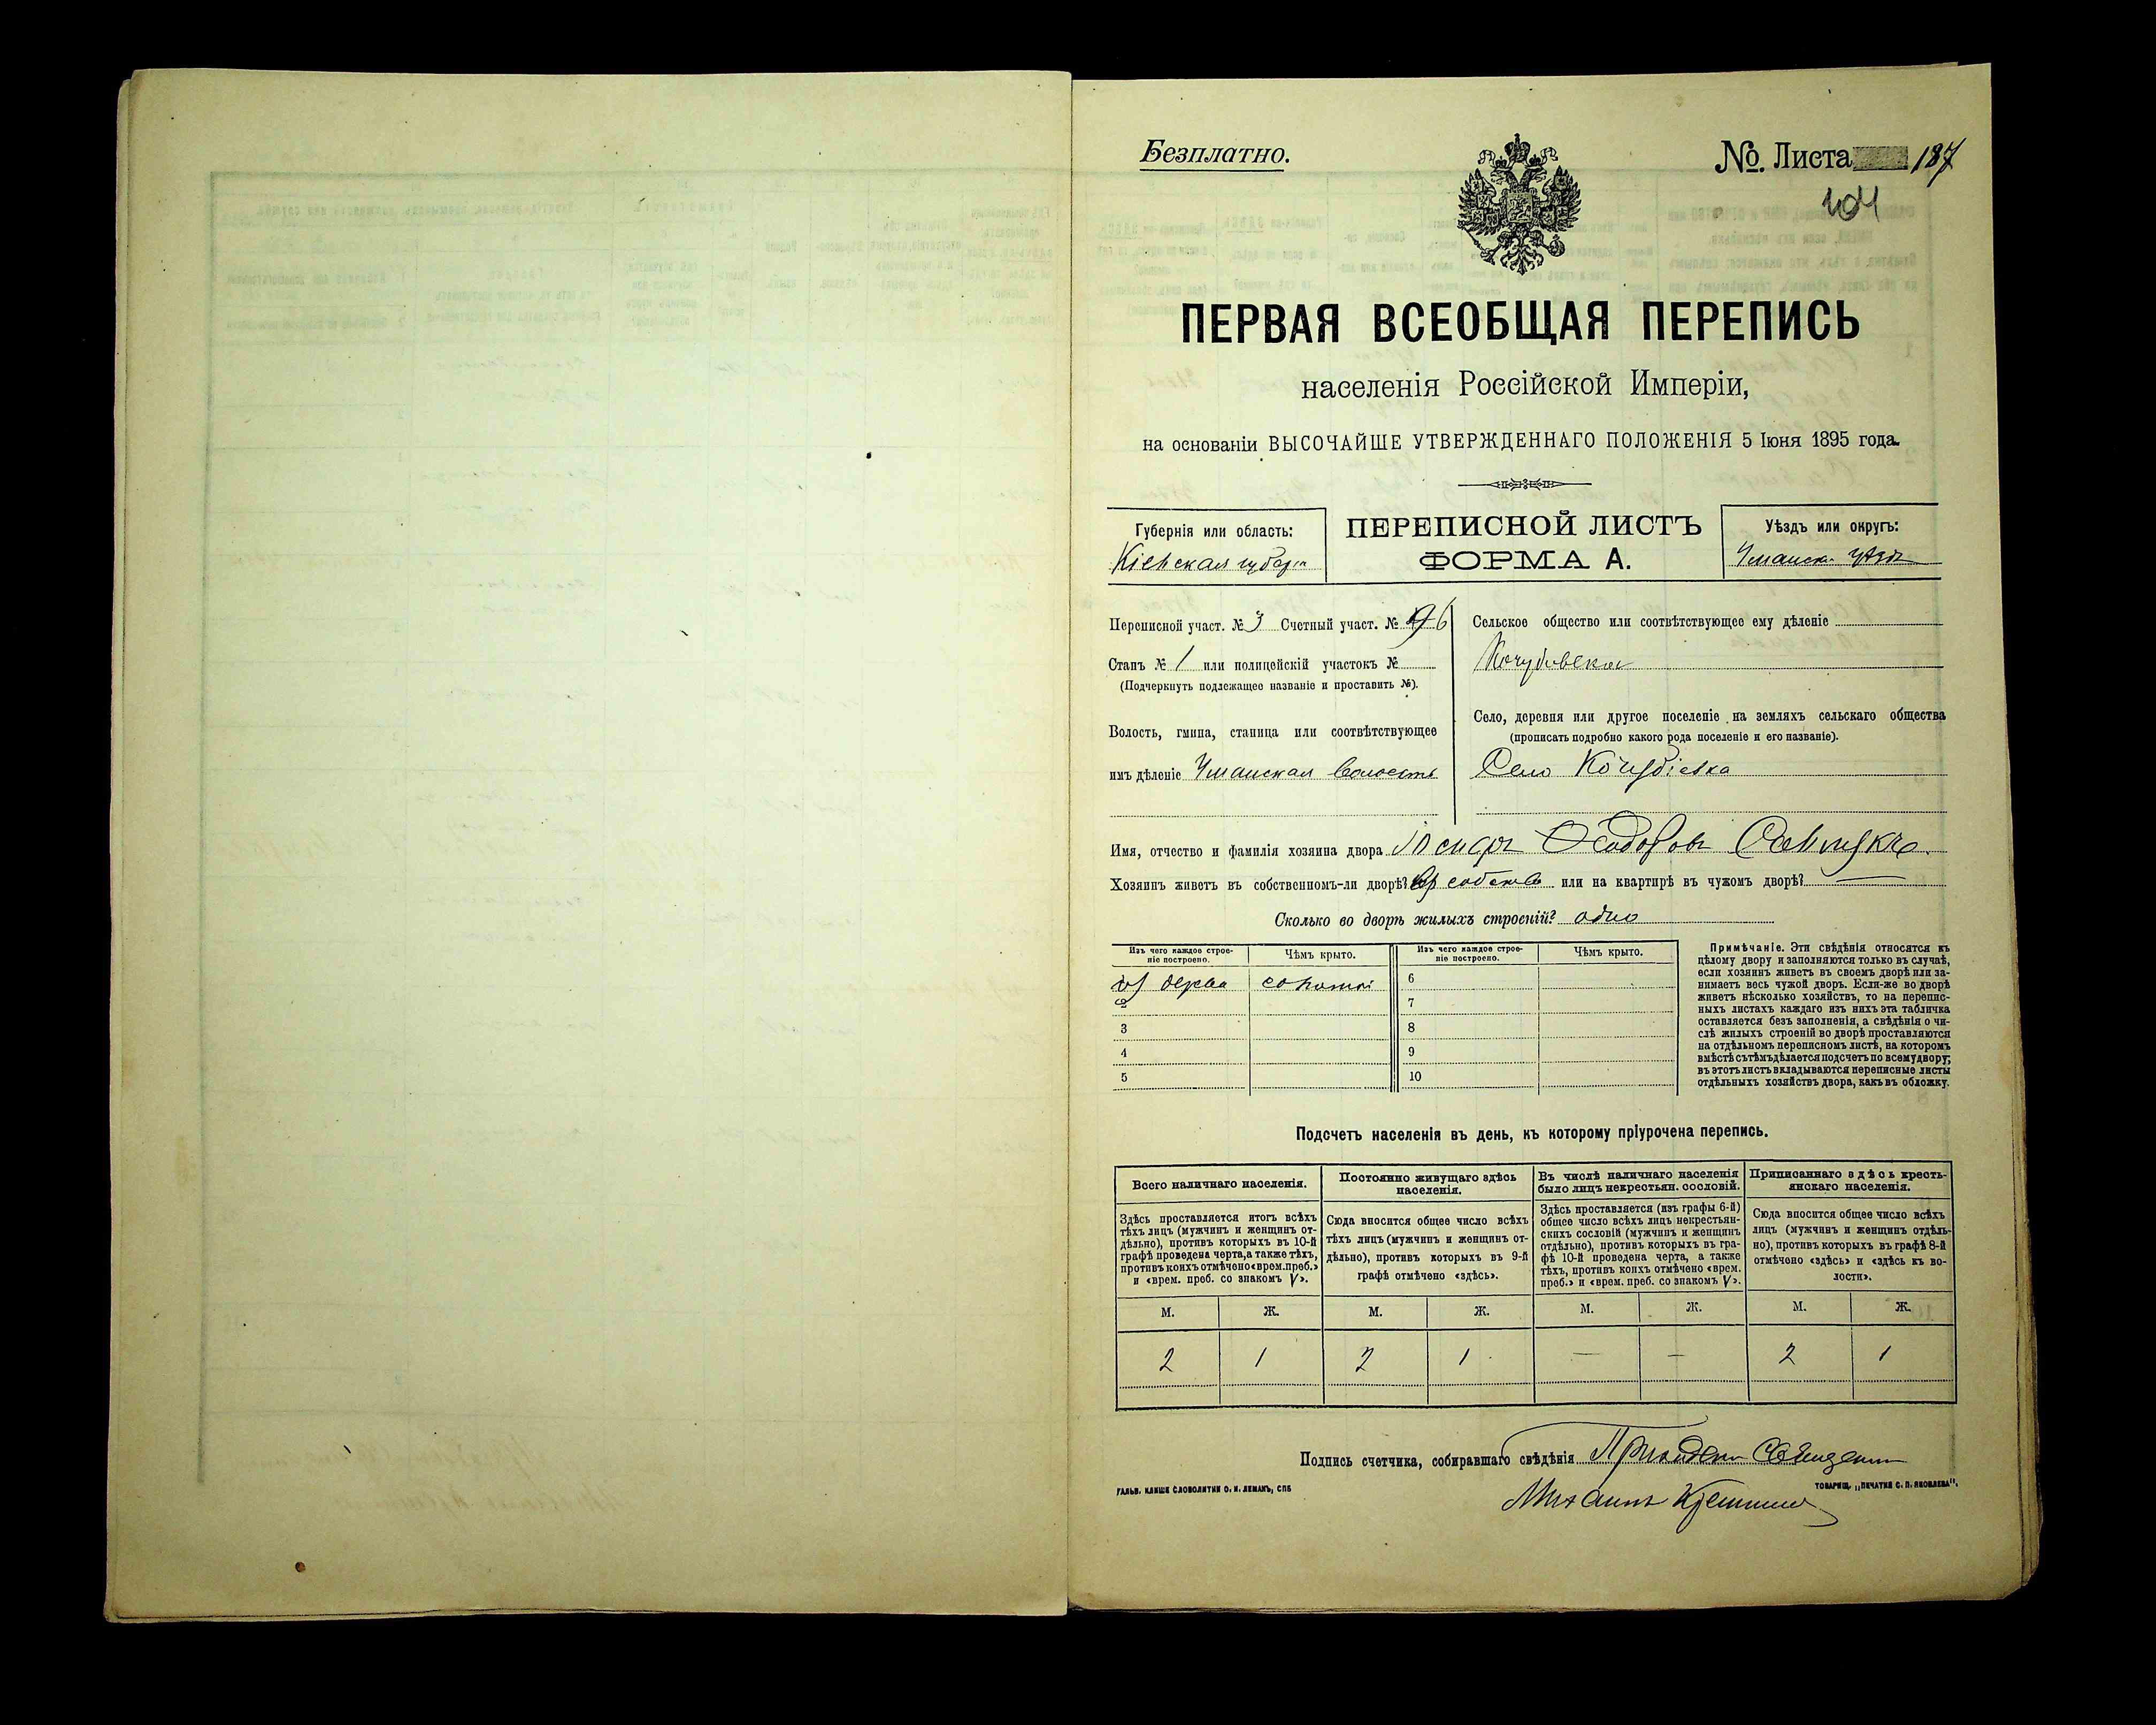 Безплатно.
№. Листа 187
104
ПЕРВАЯ ВСЕОБЩАЯ ПЕРЕПИСЬ
населенія Россійской Имперіи,
на основаніи ВЫСОЧАЙШЕ УТВЕРЖДЕННАГО ПОЛОЖЕНІЯ 5 Іюня 1895 года.
Губернія или область:
Кіевская губерн
ПЕРЕПИСНОЙ ЛИСТЪ
ФОРМА А.
Уѣздъ или округъ:
Уманск. уѣздъ
Переписной участ. № 3 Счетный участ. № 6
Станъ № 1 или полицейскій участокъ №
(Подчеркнуть подлежащее названіе и проставить №).
Волость, гмина, станица или соотвѣтствующее
имъ дѣленіе Уманская волость
Сельское общество или соотвѣтствующее ему дѣленіе
Кочубіевское
Село, деревня или другое поселеніе на земляхъ сельскаго общества
(прописать подробно какого рода поселеніе и его названіе).
Село Кочубіевка
Имя, отчество и фамилія хозяина двора
Хозяинъ живетъ въ собственномъ-ли дворѣ? собств или на квартирѣ въ чужомъ дворѣ? —
Сколько во дворѣ жилыхъ строеній? одно
Изъ чего каждое строе-
ніе построено.
Чѣмъ крыто.
Изъ чего каждое строе-
ніе построено.
Чѣмъ крыто.
дерева соломой
3
4
5
6
7
8
9
10
Примѣчаніе. Эти свѣдѣнія относятся къ
цѣлому двору и заполняются только въ случаѣ,
если хозяинъ живетъ въ своемъ дворѣ или за-
нимаетъ весь чужой дворъ. Если-же во дворѣ
живетъ нѣсколько хозяйствъ, то на перепис-
ныхъ листахъ каждаго изъ нихъ эта табличка
оставляется безъ заполненія, а свѣдѣнія о чи-
слѣ жилыхъ строеній во дворѣ проставляются
на отдѣльномъ переписномъ листѣ, на которомъ
вмѣстѣ съ тѣмъ дѣлается подсчетъ по всему двору;
въ этотъ листъ вкладываются переписные листы
отдѣльныхъ хозяйствъ двора, какъ въ обложку.
Подсчетъ населенія въ день, къ которому пріурочена перепись.
Всего наличнаго населенія.
Здѣсь проставляется итогъ всѣхъ
тѣхъ лицъ (мужчинъ и женщинъ от-
дѣльно), противъ которыхъ въ 10-й
графѣ проведена черта, а также тѣхъ,
противъ коихъ отмѣчено «врем. преб.»
и «врем. преб. со знакомъ V».
Постоянно живущаго здѣсь
населенія.
Сюда вносится общее число всѣхъ
тѣхъ лицъ (мужчинъ и женщинъ от-
дѣльно), противъ которыхъ въ 9-й
графѣ отмѣчено «здѣсь».
Въ числѣ наличнаго населенія
было лицъ некрестьян. сословій.
Здѣсь проставляется (изъ графы 6-й)
общее число всѣхъ лицъ некрестьян-
скихъ сословій (мужчинъ и женщинъ
отдѣльно), противъ которыхъ въ гра-
фѣ 10-й проведена черта, а также
тѣхъ, противъ коихъ отмѣчено «врем.
преб.» и «врем. преб. со знакомъ V».
Приписаннаго здѣсь кресть-
янскаго населенія.
Сюда вносится общее число всѣхъ
лицъ (мужчинъ и женщинъ отдѣль-
но), противъ которыхъ въ графѣ 8-й
отмѣчено «здѣсь» и «здѣсь къ во-
лости».
М. Ж. М. Ж. М. Ж. М. Ж.
2 1 2 1 — — 2 1
Подпись счетчика, собиравшаго свѣдѣнія
Михаилъ
ГАЛЬВ. КЛИШЕ СЛОВОЛИТНИ О. И. ЛЕМАНЪ, СПБ
ТОВАРИЩ. „ПЕЧАТНЯ С. П. ЯКОВЛЕВА".